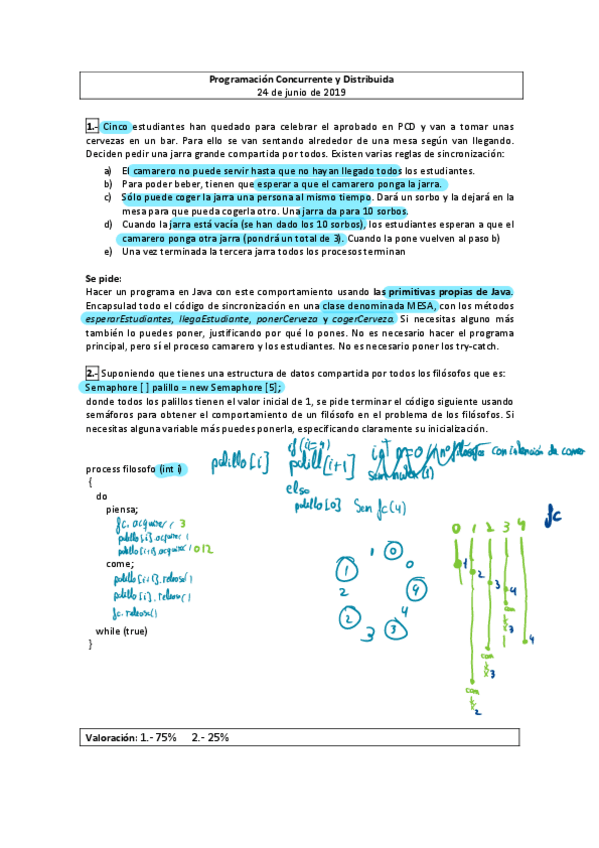 Programación Concurrente y Distribuida
24 de junio de 2019
1.- Cinco estudiantes han quedado para celebrar el aprobado en PCD y van a tomar unas
cervezas en un bar. Para ello se van sentando alrededor de una mesa según van llegando.
Deciden pedir una jarra grande compartida por todos. Existen varias reglas de sincronización:
a) El camarero no puede servir hasta que no hayan llegado todos los estudiantes.
b) Para poder beber, tienen que esperar a que el camarero ponga la jarra.
c) Sólo puede coger la jarra una persona al mismo tiempo. Dará un sorbo y la dejará en la
mesa para que pueda cogerla otro. Una jarra da para 10 sorbos.
d) Cuando la jarra está vacía (se han dado los 10 sorbos), los estudiantes esperan a que el
camarero ponga otra jarra (pondrá un total de 3). Cuando la pone vuelven al paso b)
e) Una vez terminada la tercera jarra todos los procesos terminan
Se pide:
Hacer un programa en Java con este comportamiento usando las primitivas propias de Java.
Encapsulad todo el código de sincronización en una clase denominada MESA, con los métodos
esperarEstudiantes, llegaEstudiante, ponerCerveza y cogerCerveza. Si necesitas alguno más
también lo puedes poner, justificando por qué lo pones. No es necesario hacer el programa
principal, pero sí el proceso camarero y los estudiantes. No es necesario poner los try-catch.
2.- Suponiendo que tienes una estructura de datos compartida por todos los filósofos que es:
Semaphore [ ] palillo = new Semaphore [5];
donde todos los palillos tienen el valor inicial de 1, se pide terminar el código siguiente usando
semáforos para obtener el comportamiento de un filósofo en el problema de los filósofos. Si
necesitas alguna variable más puedes ponerla, especificando claramente su inicialización.
if (i=4)
palillo[i] palill[i+1] int n=0 // nº filósofos con intención de comer
else
palillo[0] Sem fc(4)
process filosofo (int i)
{
do
piensa;
fc.acquire 3
palillo[i].acquire
palillo[i+1].acquire 012
come;
palillo[i+1].release()
palillo[i].release()
fc.release()
while (true)
}
fc
0 1 2 3 4
1 0 0
1 4
2 4
2 3 3
1 2 3 4
com 3
com 3 4
com
2
Valoración: 1.- 75% 2.- 25%